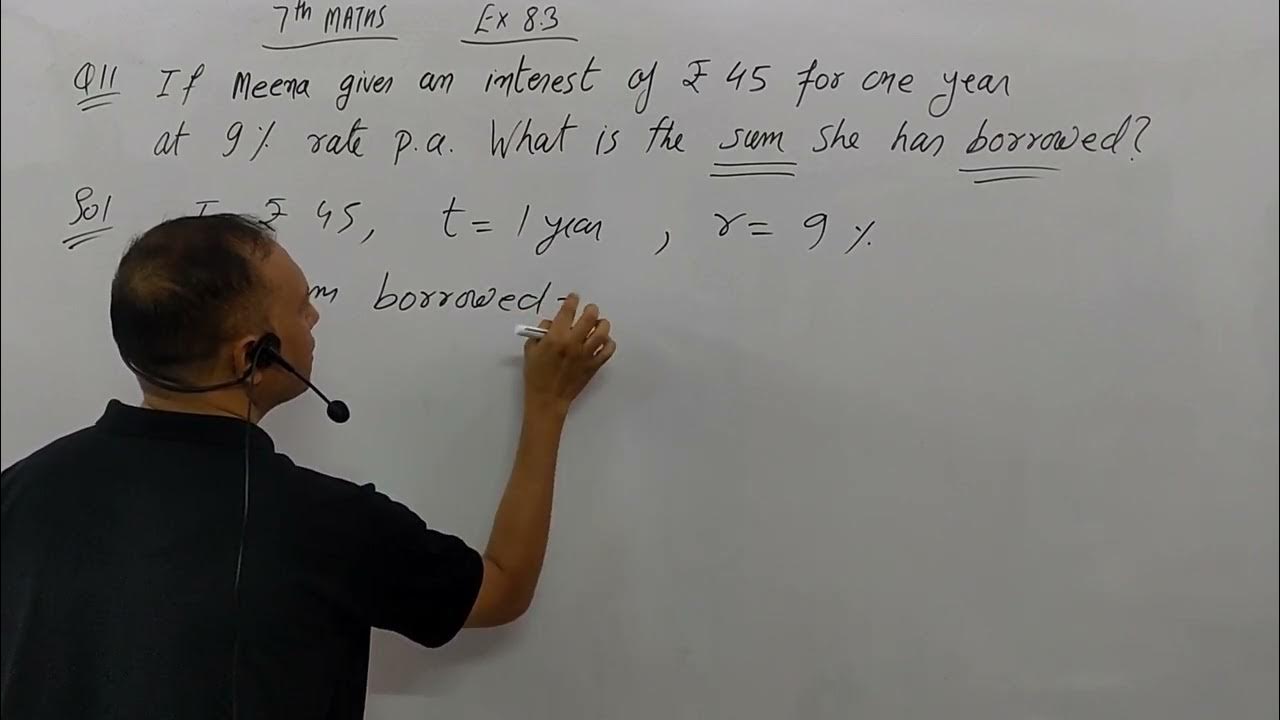 7th MATHS Ex 8.3
Q11 If Meena gives an interest of ₹ 45 for one year
at 9% rate p.a. What is the sum she has borrowed?
Sol I ₹ 45, t = 1 year, r = 9%
borrowed =